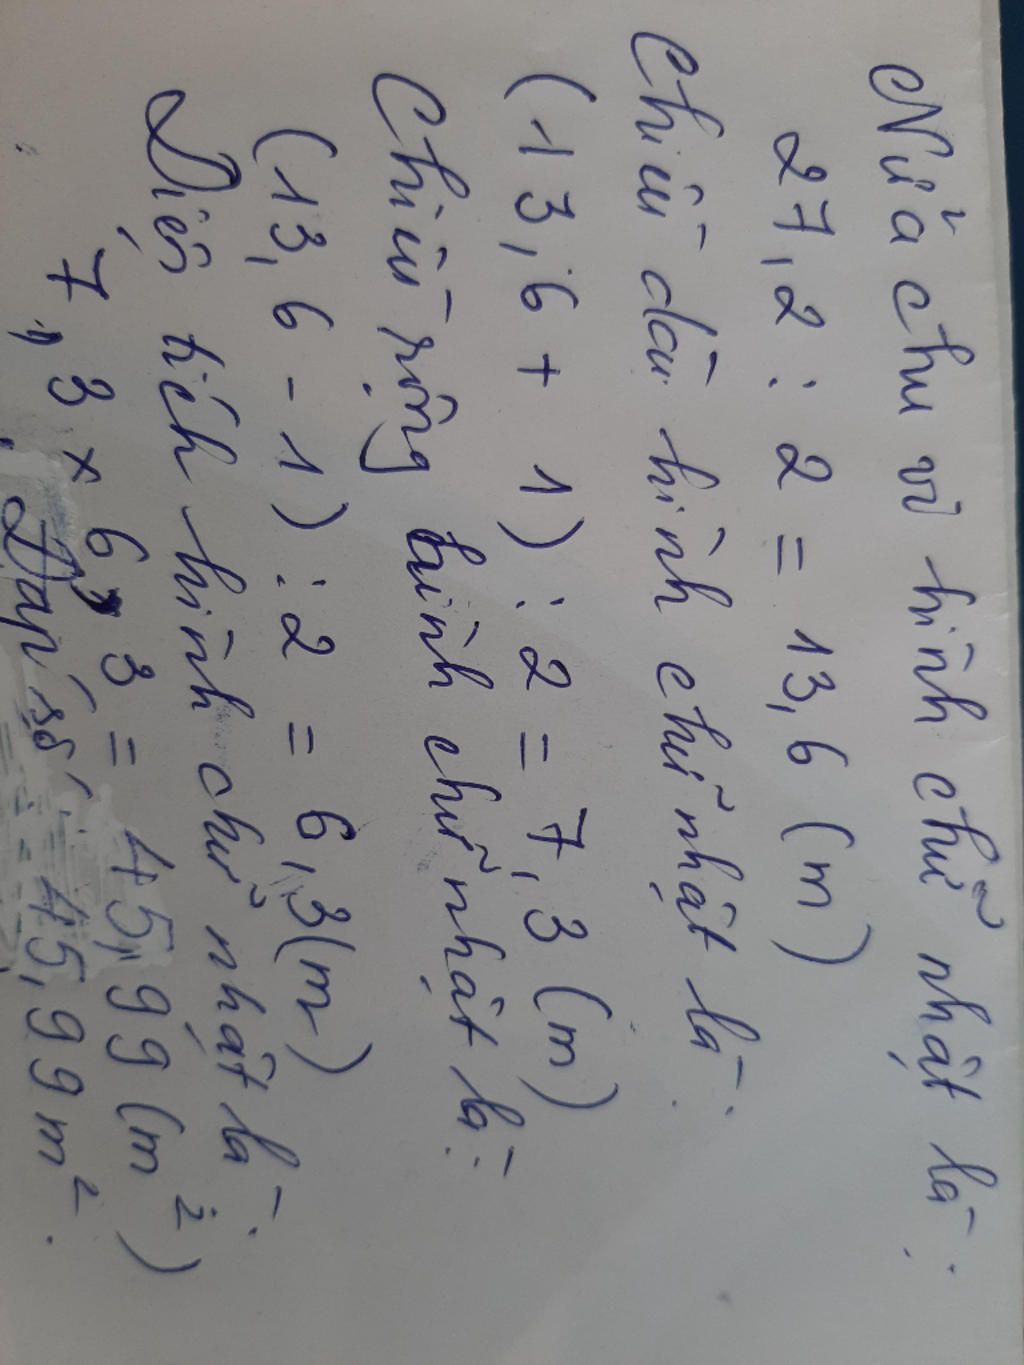 Nửa chu vi hình chữ nhật là:
27,2 : 2 = 13,6 (m)
Chiều dài hình chữ nhật là:
(13,6 + 1) : 2 = 7,3 (m)
Chiều rộng hình chữ nhật là:
(13,6 - 1) : 2 = 6,3 (m)
Diện tích hình chữ nhật là:
7,3 x 6,3 = 45,99 (m²)
Đáp số: 45,99 m².